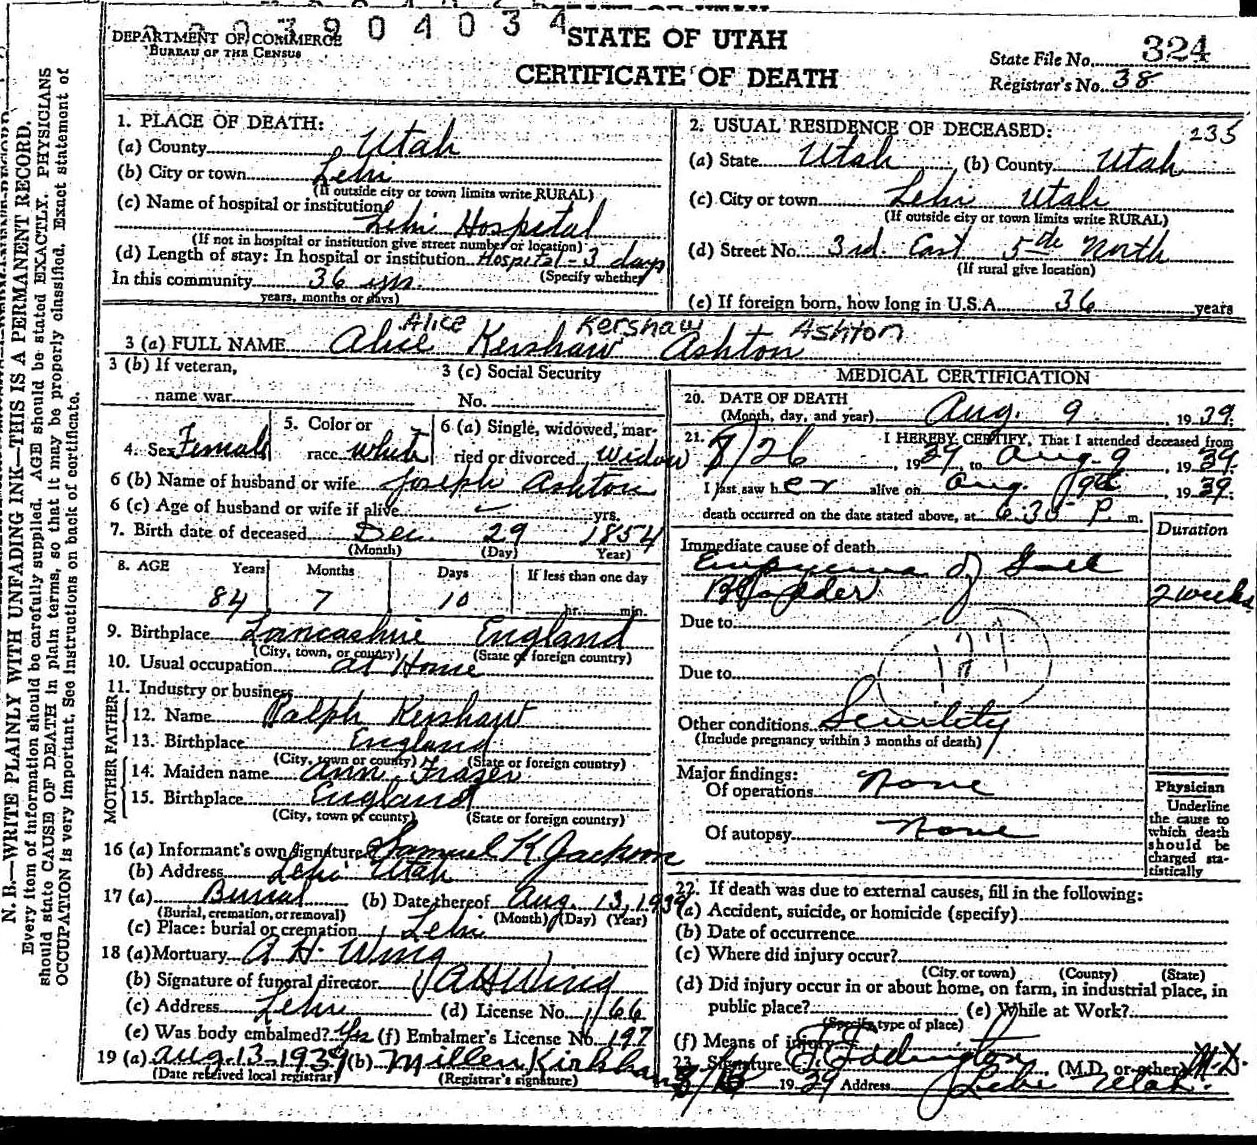 2 2 0 3 9 0 4 0 3 4
DEPARTMENT OF COMMERCE
BUREAU OF THE CENSUS
STATE OF UTAH
CERTIFICATE OF DEATH
State File No. 324
Registrar's No. 38
N. B.—WRITE PLAINLY WITH UNFADING INK—THIS IS A PERMANENT RECORD.
Every item of information should be carefully supplied. AGE should be stated EXACTLY. PHYSICIANS
should state CAUSE OF DEATH in plain terms, so that it may be properly classified. Exact statement of
OCCUPATION is very important. See instructions on back of certificate.
1. PLACE OF DEATH:
(a) County Utah
(b) City or town Lehi
(If outside city or town limits write RURAL)
(c) Name of hospital or institution
Lehi Hospital
(If not in hospital or institution give street number or location)
(d) Length of stay: In hospital or institution Hospital - 3 days
(Specify whether
In this community 36 yrs.
years, months or days)
2. USUAL RESIDENCE OF DECEASED: 235
(a) State Utah (b) County Utah
(c) City or town Lehi Utah
(If outside city or town limits write RURAL)
(d) Street No. 3rd. East 5th North
(If rural give location)
(e) If foreign born, how long in U.S.A. 36 years
Alice Kershaw Ashton
3 (a) FULL NAME Alice Kershaw Ashton
3 (b) If veteran,
name war
3 (c) Social Security
No.
4. Sex Female
5. Color or
race white
6 (a) Single, widowed, mar-
ried or divorced widow
6 (b) Name of husband or wife Joseph Ashton
6 (c) Age of husband or wife if alive yrs.
7. Birth date of deceased Dec. 29 1854
(Month) (Day) Year)
8. AGE Years Months Days If less than one day
84 7 10 hr. min.
9. Birthplace Lancashire England
(City, town, or county) (State or foreign country)
10. Usual occupation at Home
11. Industry or business
FATHER
12. Name Ralph Kershaw
13. Birthplace England
(City, town or county) (State or foreign country)
MOTHER
14. Maiden name Ann Frazer
15. Birthplace England
(City, town or county) (State or foreign country)
16 (a) Informant's own signature Samuel K Jackson
(b) Address Lehi Utah
17 (a) Burial (b) Date thereof Aug. 13, 1939
(Burial, cremation, or removal) (Month) (Day) (Year)
(c) Place: burial or cremation Lehi
18 (a) Mortuary A H Wing
(b) Signature of funeral director AH Wing
(c) Address Lehi (d) License No. 166
(e) Was body embalmed? Yes (f) Embalmer's License No. 197
19 (a) Aug. 13-1939 (b) Millen Kirkham
(Date received local registrar) (Registrar's signature)
MEDICAL CERTIFICATION
20. DATE OF DEATH
(Month, day, and year) Aug. 9 , 1939.
21. I HEREBY CERTIFY, That I attended deceased from
7/26 , 1939 to Aug. 9 , 1939.
I last saw her alive on Aug. 9th , 1939.
death occurred on the date stated above, at 6:30 P. m.
Duration
Immediate cause of death
Empyema of Gall
Bladder 2 weeks
Due to
Due to
Other conditions Senility
(Include pregnancy within 3 months of death)
Major findings:
Of operations None
Of autopsy None
Physician
Underline
the cause to
which death
should be
charged sta-
tistically
22. If death was due to external causes, fill in the following:
(a) Accident, suicide, or homicide (specify)
(b) Date of occurrence
(c) Where did injury occur?
(City or town) (County) (State)
(d) Did injury occur in or about home, on farm, in industrial place, in
public place? (e) While at Work?
(Specify type of place)
(f) Means of injury
23. Signature Eddington (M.D. or other) M.D.
1939 Address Lehi Utah.